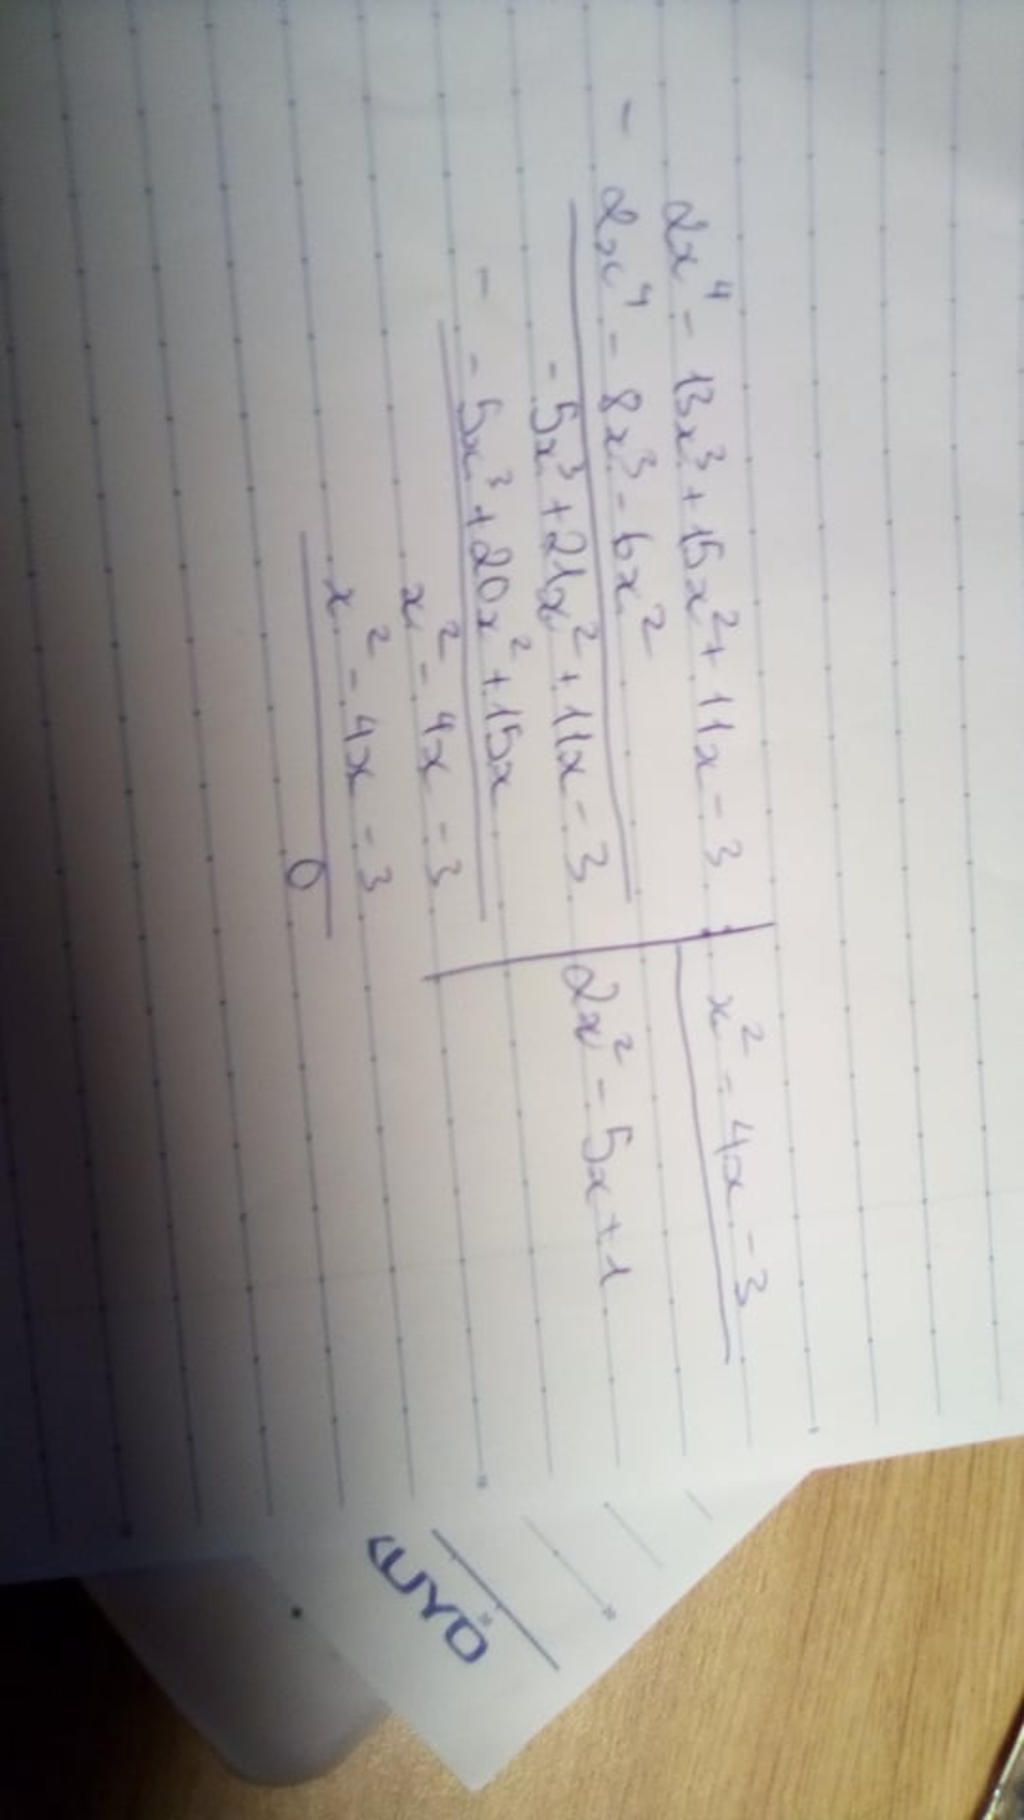 2x⁴ - 13x³ + 15x² + 11x - 3 | x² - 4x - 3
- 2x⁴ - 8x³ - 6x² | 2x² - 5x + 1
- 5x³ + 21x² + 11x - 3
- - 5x³ + 20x² + 15x
x² - 4x - 3
x² - 4x - 3
0